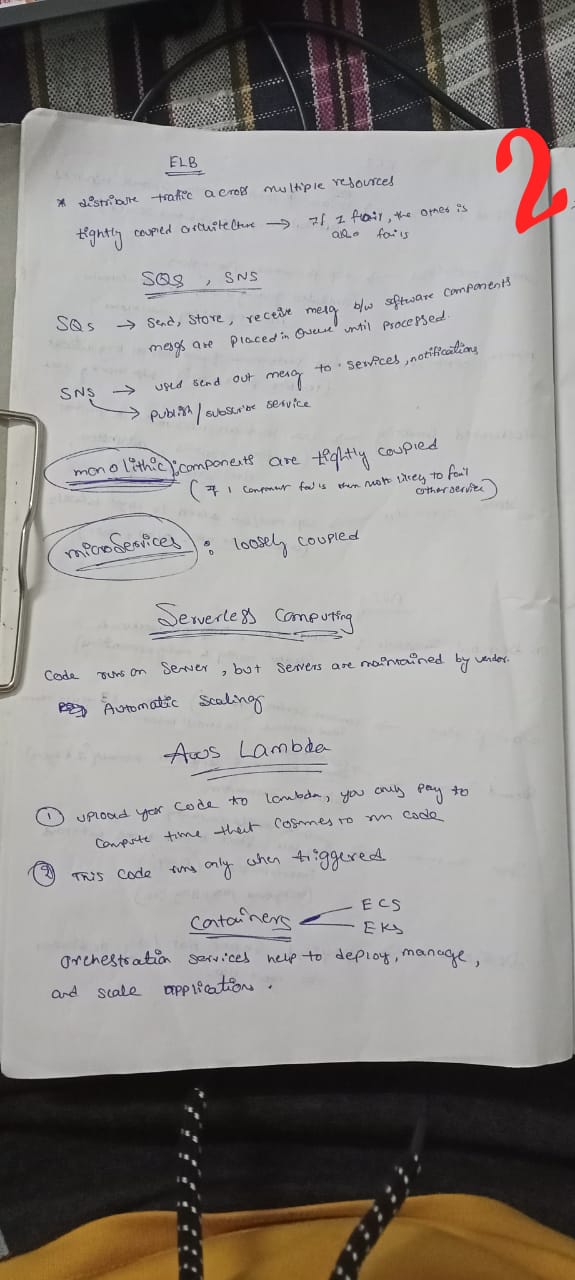 2
ELB
* distribute traffic across multiple resources
tightly coupled architecture → If 1 fail, the other is
also fails
SQS , SNS
SQS → Send, Store, receive mesg b/w software components
mesgs are placed in Queue until processed.
SNS → used send out mesg to services, notifications
→ publish / subscribe service
monolithic : components are tightly coupled
( If 1 component fails then most likely to fail
other service )
microservices : loosely coupled
Serverless Computing
Code runs on Server , but servers are maintained by vendor.
Automatic scaling
Aws Lambda
① upload your code to lambda, you only pay to
compute time that cosmes to run code
② This code runs only when triggered
Containers ECS
EKS
orchestration services help to deploy, manage,
and scale application .